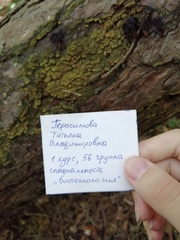 Герасимова
Татьяна
Владимировна
1 курс, 56 группа
специальность
„Биотехнология"